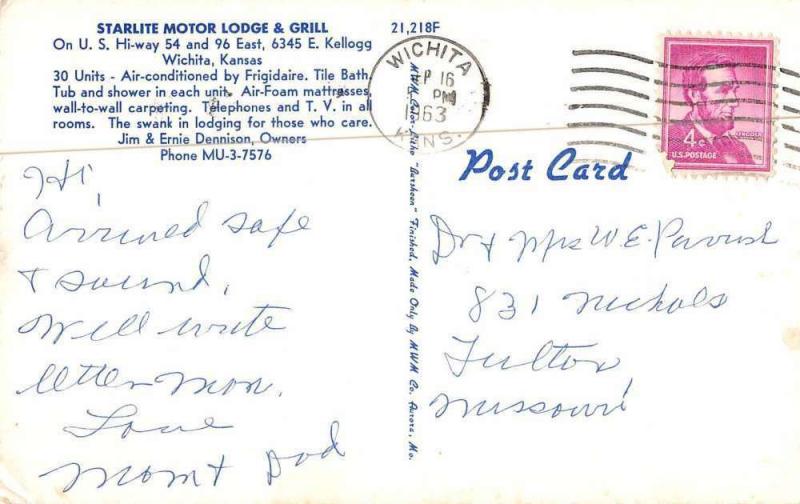 STARLITE MOTOR LODGE & GRILL
On U. S. Hi-way 54 and 96 East, 6345 E. Kellogg
Wichita, Kansas
30 Units - Air-conditioned by Frigidaire. Tile Bath,
Tub and shower in each unit. Air-Foam mattresses,
wall-to-wall carpeting. Telephones and T. V. in all
rooms. The swank in lodging for those who care.
Jim & Ernie Dennison, Owners
Phone MU-3-7576
Hi,
Arrived safe
& sound.
Will write
letter Mon.
Love
Mom & Dad
21,218F
MWM Color-Litho "Bursheen" Finished, Made Only By MWM Co. Aurora, Mo.
WICHITA
P 16
PM
1963
KANS.
4c
U.S. POSTAGE
LINCOLN
Post Card
Dr & Mrs W.E. Parrish
831 Nichols
Fulton
Missouri